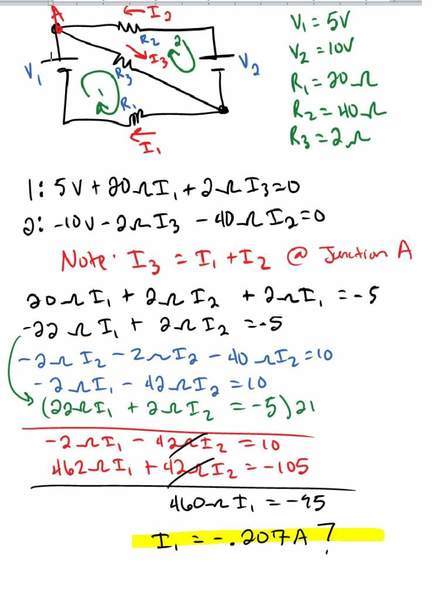 A I₂
R₂ 2
V₁ I₃ V₂
R₃
1
R₁
I₁
V₁ = 5V
V₂ = 10V
R₁ = 20Ω
R₂ = 40Ω
R₃ = 2Ω
1: 5V + 20ΩI₁ + 2ΩI₃ = 0
2: -10V - 2ΩI₃ - 40ΩI₂ = 0
Note: I₃ = I₁ + I₂ @ Junction A
20ΩI₁ + 2ΩI₂ + 2ΩI₁ = -5
-22ΩI₁ + 2ΩI₂ = -5
-2ΩI₂ - 2ΩI₂ - 40ΩI₂ = 10
-2ΩI₁ - 42ΩI₂ = 10
(22ΩI₁ + 2ΩI₂ = -5)21
-2ΩI₁ - 42ΩI₂ = 10
462ΩI₁ + 42ΩI₂ = -105
460ΩI₁ = -95
I₁ = -.207A?